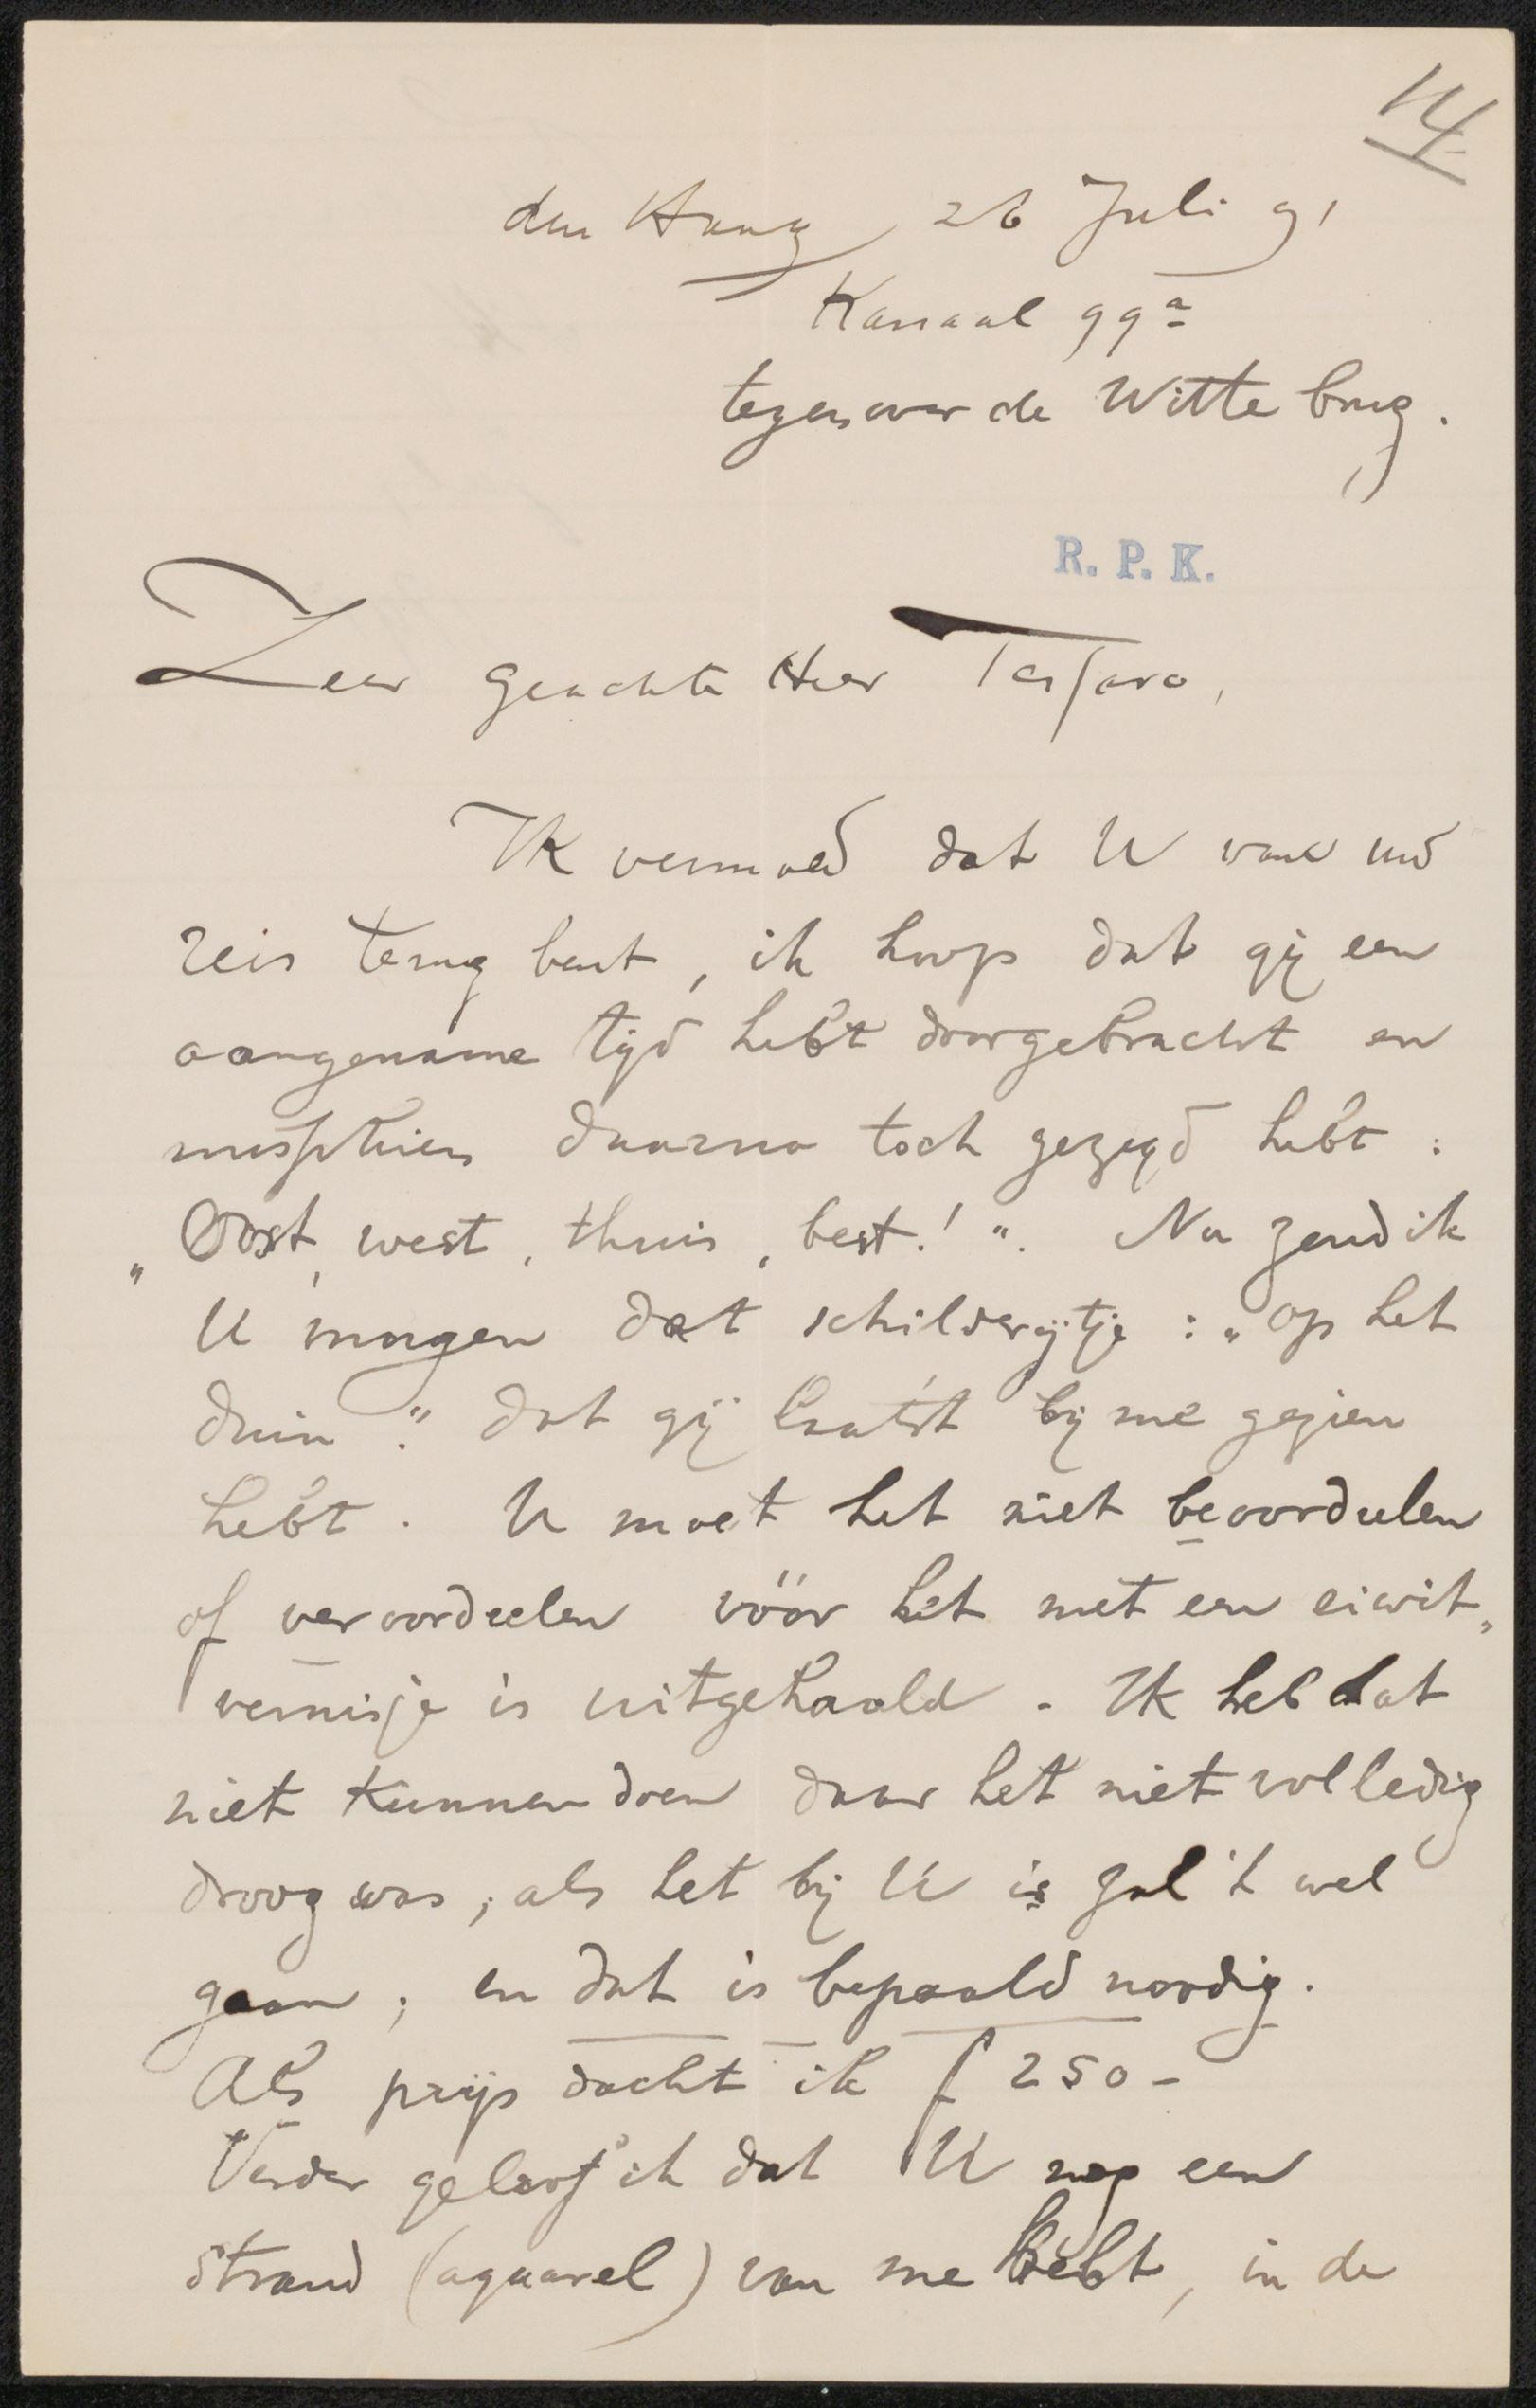 14
den Haag 26 Juli 91
Kanaal 99a
tegenover de Witte brug.
R. P. K.
Zeer geachte Heer Tersara,
Ik vermoed dat U van uw
reis terug bent, ik hoop dat gij een
aangename tijd hebt doorgebracht en
misschien daarna toch gezegd hebt:
„Oost, west, thuis, best!". Nu zend ik
U morgen dat schilderijtje: „op het
duin". dat gij laatst bij me gezien
hebt. U moet het niet beoordeelen
of veroordeelen vóór het met een eiwit„
vernisje is uitgehaald. Ik heb dat
niet kunnen doen daar het niet volledig
droog was; als het bij U is zal 't wel
gaan; en dat is bepaald noodig.
Als prijs dacht ik f 250-
Verder geloof ik dat U nog een
strand (aquarel) van me hebt, in de